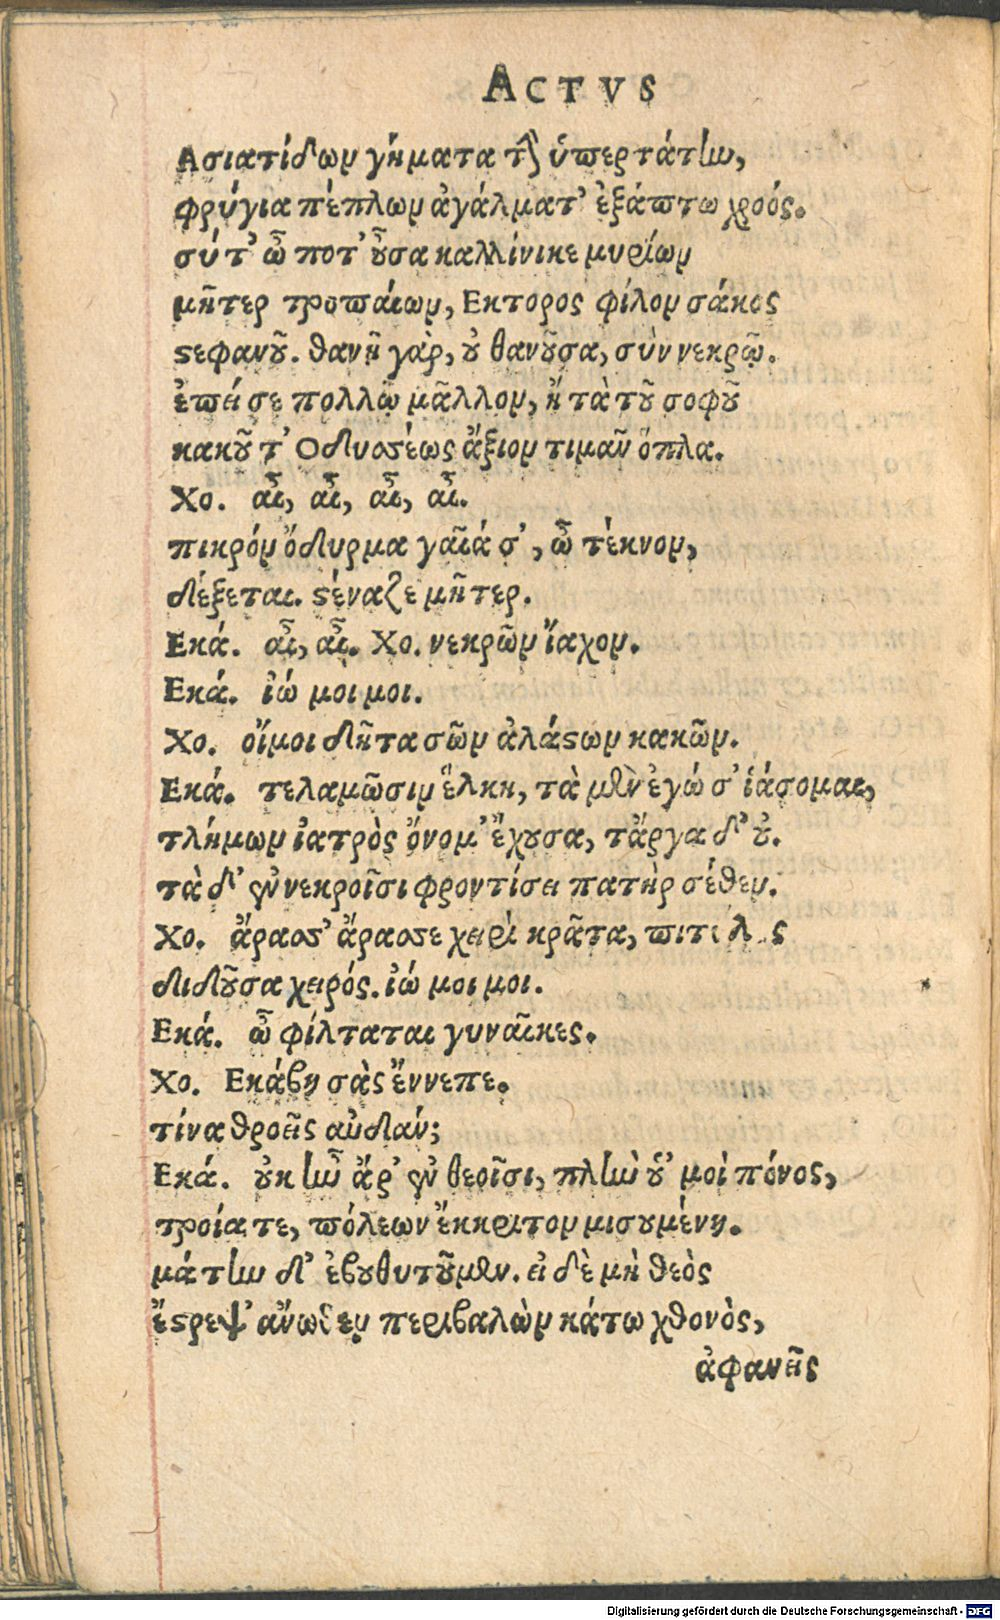 ACTVS
Ασιατίδων γήματα τὴν ὑπερτάτην,
φρύγια πέπλων ἀγάλματ᾽ ἐξάπτω χροός.
σύ τ᾽ ὦ ποτ᾽ οὖσα καλλίνικε μυρίων
μῆτερ τροπαίων, Εκτορος φίλον σάκος
στεφανοῦ. θανῆ γὰρ, οὐ θανοῦσα, σὺν νεκρῷ.
ἐπεί σε πολλῷ μᾶλλον, ἢ τὰ τοῦ σοφοῦ
κακοῦ τ᾽ Οδυσσέως ἄξιον τιμᾶν ὅπλα.
Χο. αἶ, αἶ, αἶ, αἶ.
πικρόν ὄδυρμα γαῖά σ᾽, ὦ τέκνον,
δέξεται. στέναζε μῆτερ.
Εκά. αἶ, αἶ. Χο. νεκρῶν ἴαχον.
Εκά. ἰώ μοι μοι.
Χο. οἴμοι δῆτα σῶν ἀλάστων κακῶν.
Εκά. τελαμῶσιν ἕλκη, τὰ μὲν ἐγώ σ᾽ ἰάσομαι,
τλήμων ἰατρὸς ὄνομ᾽ ἔχουσα, τἄργα δ᾽ οὐ.
τὰ δ᾽ ἐν νεκροῖσι φροντίσει πατὴρ σέθεν.
Χο. ἄρασσ᾽ ἄρασσε χειρὶ κρᾶτα,
διδοῦσα χειρός. ἰώ μοι μοι.
Εκά. ὦ φίλταται γυναῖκες.
Χο. Εκάβη σὰς ἔννεπε.
τίνα θροεῖς αὐδάν;
Εκά. οὐκ ἦν ἄρ᾽ ἐν θεοῖσι, πλὴν οὑ᾽ μοὶ πόνος,
τροία τε, πόλεων ἔκκριτον μισουμένη.
μάτην δ᾽ ἐβουθυτοῦμεν. εἰ δὲ μὴ θεὸς
ἔστρεψ᾽ ἄνωθεν περιβαλὼν κάτω χθονὸς,
ἀφανεῖς
Digitalisierung gefördert durch die Deutsche Forschungsgemeinschaft - DFG